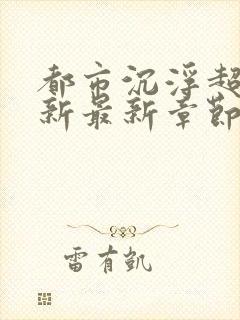 都市沉浮超
新最新章節
雷有凱